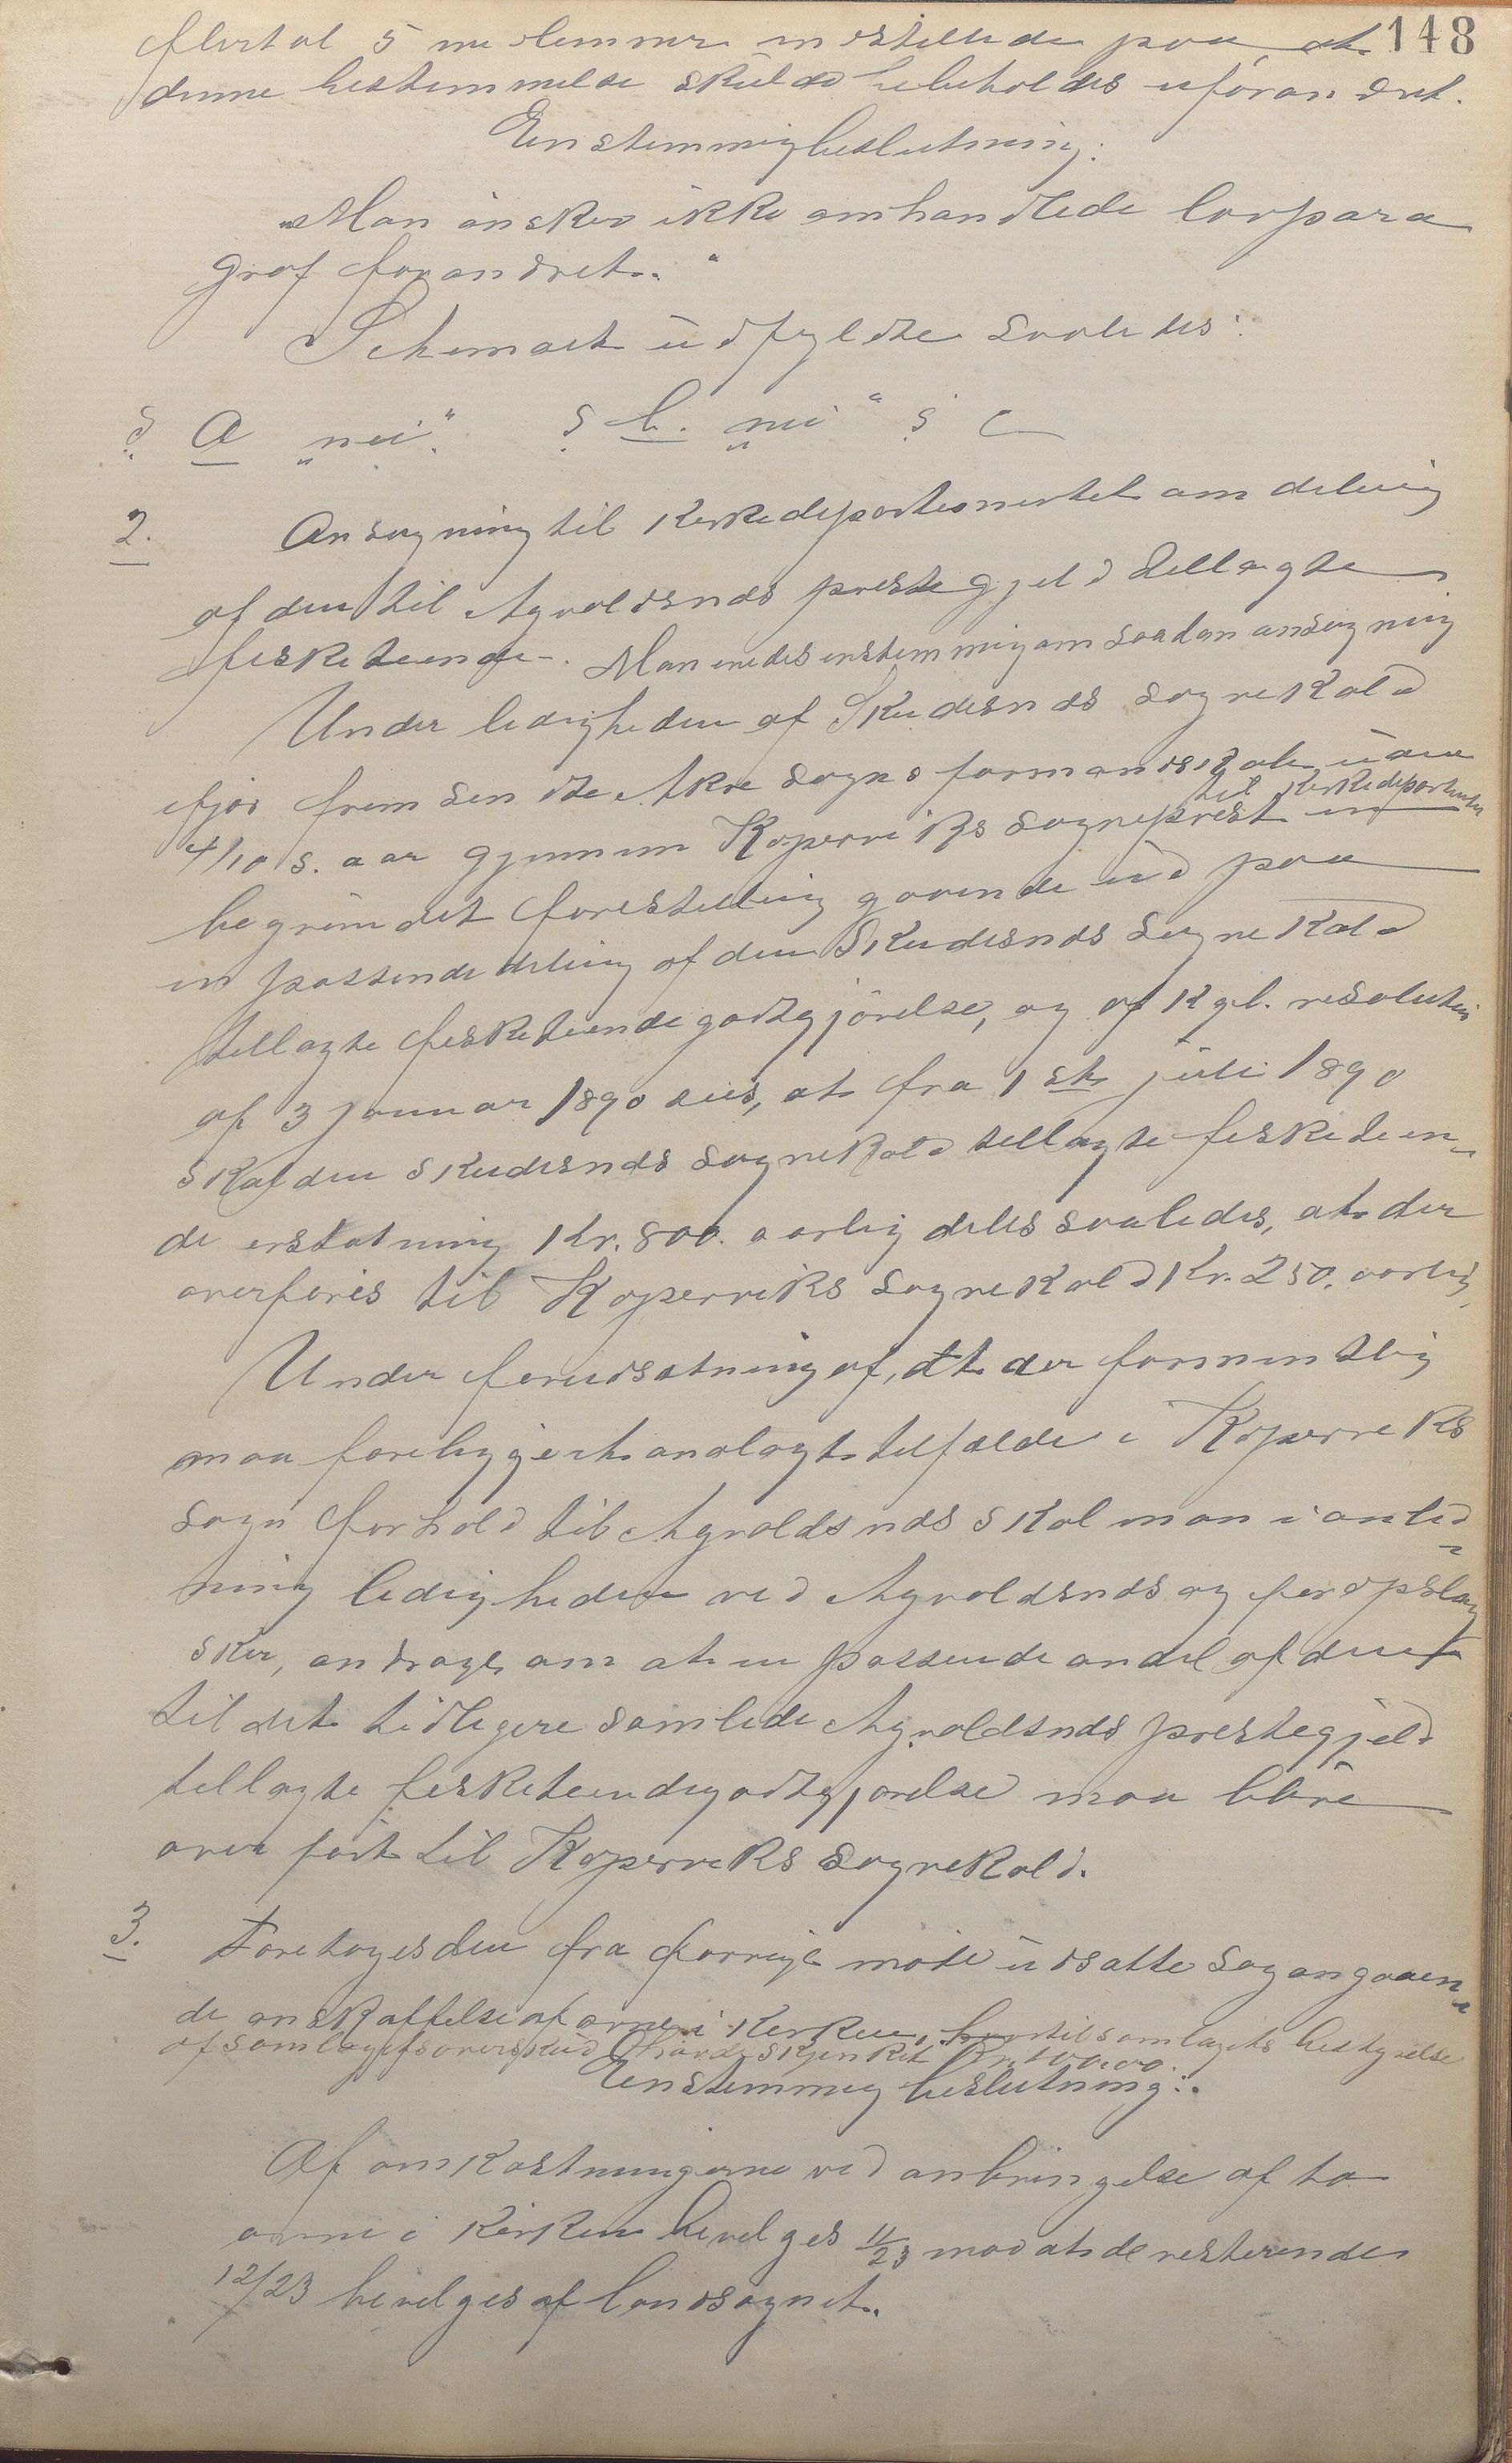 148
flertal 5 medlemmer indstillede paa, at
denne bestemmelse skulde bebeholdes uforandret.
Enstemmig beslutning:
„Man ønsker ikke omhandlede lovpara
graf forandret."
Schemaet udfyldtes saaledes:
§ a „nei". § b. „nei" § c
2. Ansøgning til Kirkedepartementet om deling
af den til Avaldsnds prestegjeld tillagte
fisketiende. Man enedes enstemmig om saadan ansøgning
Under ledigheden af Skudesnds sognekald
ifjor fremsendte Akre sogns formandskab under
4/10 s. aar gjennem Kopervik's sogneprest til Kirkedepartmentet en
begrundet forestilling gaaende ud paa
en passende deling af den Skudesnds sognekald
tillagte fisketiendegodtgjørelse, og af Kgl. resolution
af 3 januar 1890 sees, at fra 1ste juli 1890
skal den Skudesnds sognekald tillagte fisketien-
de erstatning Kr. 800. aarlig deles saaledes, at der
overføres til Koperviks sognekald Kr. 250. aarlig,
Under forudsætning af, at der formentlig
maa foreligge et analogt tilfælde i Koperviks
sogns forhold til Avaldsnds skal man i anled-
ning ledigheden ved Avaldsnds og før opslag
sker, andrage om at en passende andel af den
til det tidligere samlede Avaldsnds prestegjeld
tillagte fisketiendegodtgjørelse maa blive
over ført til Koperviks sognekald.
3. Foretoges den fra forrige møde udsatte sag angaaen-
de anskaffelse af ovne i Kirken, hvortil samlagets bestyrelse
af samlagets overskud havde skjenket Kr. 100.00.
Enstemmig beslutning:
Af omkostningerne ved anbringelse af to
ovne i Kirken bevilges 11/23 mod at de resterende
12/23 bevilges af landsognet.